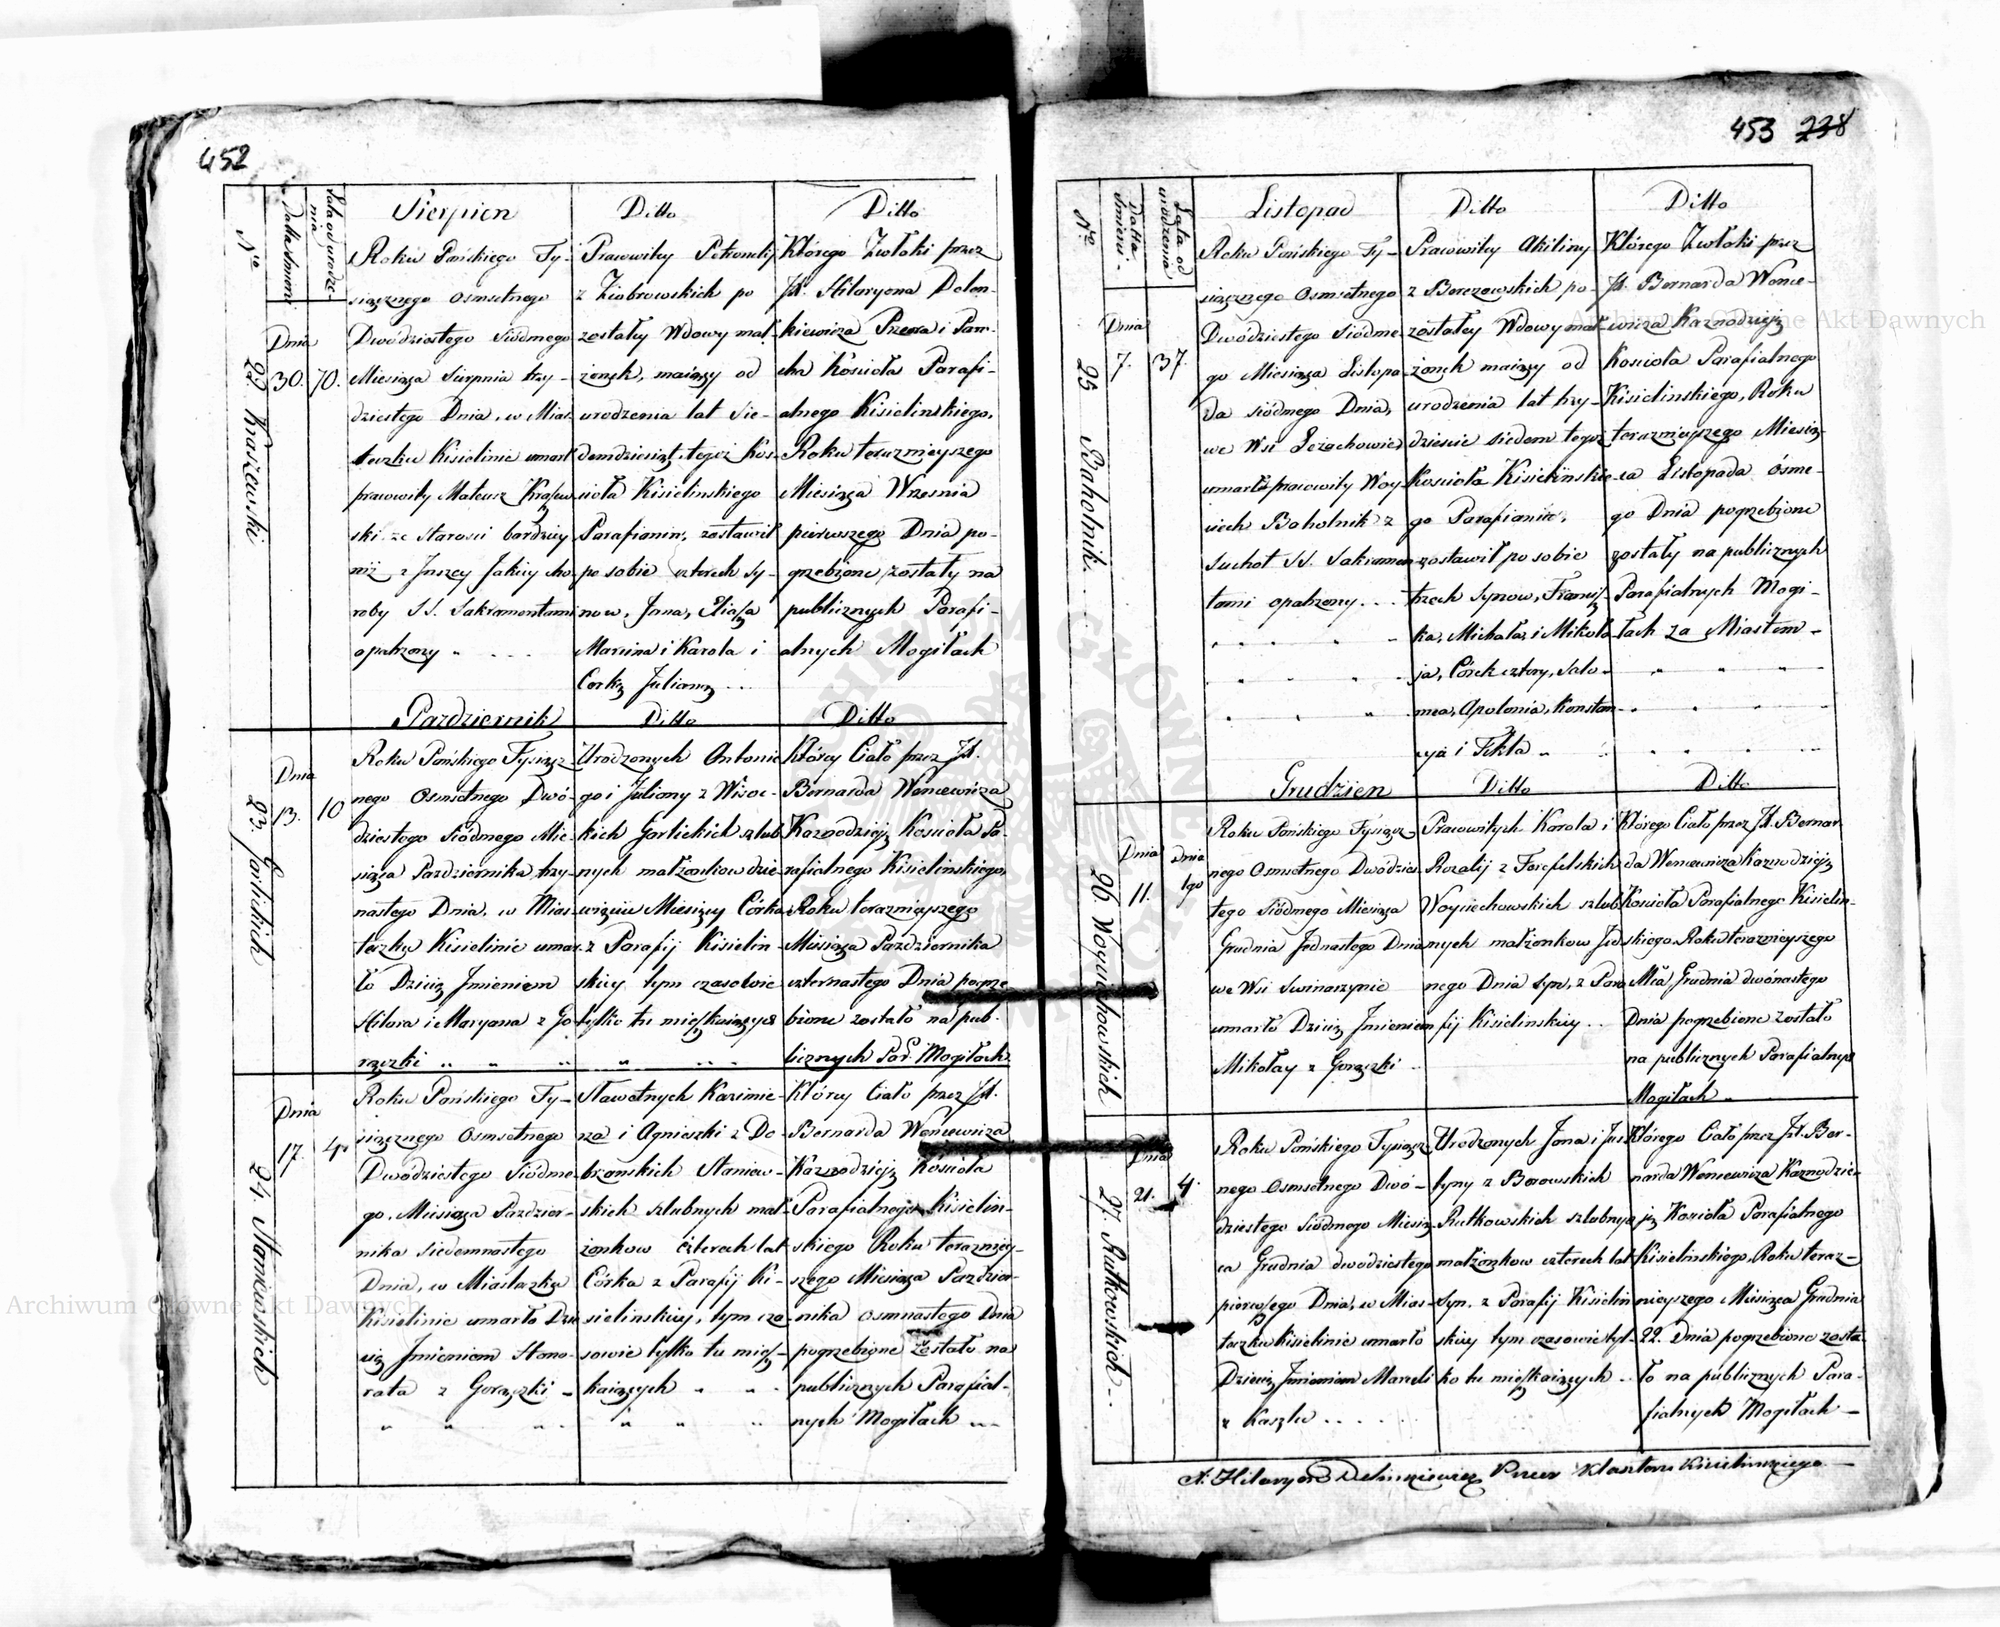 452
Nro
Datta Smierci
Lata od urodzenia
Sierpien
Roku Pańskiego Ty-
siącznego Osmsetnego
Dwódziestego Siódmego
Miesiąca Sierpnia trzy-
dziestego Dnia, w Mias-
teczku Kisielinie umarł
pracowity Mateusz
ski ze Starosci bardziey
niż z Jnszey Jakiey cho-
roby SS. Sakramentami
opatrzony
Dnia
30.
70.
22 Krażewski
Ditto
Pracowitey Petroneli
z Ziobrowskich po
zostałey Wdowy mał-
żonek, maiący od
urodzenia lat Sie-
demdziesiąt, tegoż Kos-
cioła Kisielinskiego
Parafianin, zostawił
po sobie czterech Sy-
now, Jana, Eliasza
Marcina i Karola i
Corkę Juliannę
Ditto
Którego Zwłoki przez
JX. Hilaryona Dolen-
kiewicza Przeora i Paro-
cha Kościoła Parafi-
alnego Kisielinskiego,
Roku terazmieyszego
Miesiąca Wrzesnia
pierwszego Dnia po-
grzebione zostały na
publicznych Parafi-
alnych Mogiłach
Pazdziernik
Dnia
13.
10
23. Garlickich
Roku Pańskiego Tysiącz-
nego Osmsetnego Dwó-
dziestego Siódmego Mie-
siąca Pazdziernika trzy-
nastego Dnia, w Mias-
teczku Kisielinie umar-
ło Dziecię Jmieniem
Hilara i Maryana z Go-
rączki
Ditto
Urodzonych Antonie-
go i Julianny z Wisoc-
kich Garlickich szlub-
nych małżonkow dzie-
więciu Miesięcy Córka
z Parafij Kisielin-
skiey tym czasowie
tylko tu mieszkaiących
Ditto
Którey Ciało przez JX.
Bernarda Woncewicza
Kaznodzieję Kościoła Pa-
rafialnego Kisielinskiego,
Roku terazmieyszego
Miesiąca Pazdziernika
czternastego Dnia pogrze-
bione zostało na pub-
licznych Par: Mogiłach
Dnia
17.
24. Staniewskich
Roku Pańskiego Ty-
siącznego Osmsetnego
Dwódziestego Siódme-
go, Miesiąca Pazdzier-
nika siedemnastego
Dnia, w Miasteczku
Kisielinie umarło Dzie-
cię Jmieniem Hono-
rata z Gorączki
Sławetnych Kazimie-
rza i Agnieszki z Do-
brzanskich Staniew-
skich szlubnych mał-
żonkow czterech lat
Córka z Parafij Ki-
sielinskiey, tym cza-
sowie tylko tu miesz-
kaiących
Którey Ciało przez JX.
Bernarda Woncewicza
Kaznodzieję Kościoła
Parafialnego Kisielin-
skiego Roku terazmiey-
szego Miesiąca Pazdzier-
nika osmnastego Dnia
pogrzebione zostało na
publicznych Parafial-
nych Mogiłach
453 238
Nro
Datta Smierci
Lata od urodzenia
Listopad
Dnia
7.
37.
25 Baholnik
Roku Pańskiego Ty-
siącznego Osmsetnego
Dwódziestego Siódme-
go Miesiąca Listopa-
da siódmego Dnia,
we Wsi Leżachowie
umarł pracowity Woy-
ciech Baholnik z
Suchot SS. Sakramen-
tami opatrzony
Ditto
Pracowitey Akiliny
z Berezowskich po-
zostałey Wdowy mał-
żonek maiący od
urodzenia lat trzy-
dziescie siedem tegoż
Kościoła Kisielinskie-
go Parafianin,
zostawił po sobie
trzech Synow, Francisz-
ka, Michała, i Mikoła-
ja, Córek cztery, Salo-
mea, Apolonia, Konstan-
cya i Tekla
Ditto
Którego Zwłoki przez
JX. Bernarda Wonce-
wicza Kaznodzieję
Kościoła Parafialnego
Kisielinskiego, Roku
terazmieyszego Miesią-
ca Listopada ósme-
go Dnia pogrzebione
zostały na publicznych
Parafialnych Mogi-
łach za Miastem
Grudzien
Dnia
11.
Dnia
1go
26 Woyciechowskich
Roku Pańskiego Tysiącz-
nego Osmsetnego Dwódzies-
tego Siódmego Miesiąca
Grudnia Jednastego Dnia
we Wsi Swinarzynie
umarło Dziecię Jmieniem
Mikołay z Gorączki
Ditto
Pracowitych Karola i
Rozalij z
Woyciechowskich szlub-
nych małżonkow Jed-
nego Dnia Syn, z Para-
fij Kisielinskiey
Ditto
Którego Ciało przez JX. Bernar-
da Woncewicza Kaznodzieję
Kościoła Parafialnego Kisielin-
skiego Roku terazmieyszego
Mca Grudnia dwónastego
Dnia pogrzebione zostało
na publicznych Parafialnych
Mogiłach
Dnia
21.
4.
27. Rutkowskich
Roku Pańskiego Tysiącz-
nego Osmsetnego Dwó-
dziestego Siódmego Miesią-
ca Grudnia dwódziestego
pierwszego Dnia, w Mias-
teczku Kisielinie umarło
Dziecię Jmieniem Marceli
z Kaszlu
Urodzonych Jana i Jus-
tyny z Borowskich
Rutkowskich szlubnych
małżonkow czterech lat
Syn, z Parafij Kisielin-
skiey tym czasowie tyl-
ko tu mieszkaiących
Którego Ciało przez JX. Ber-
narda Woncewicza Kaznodzie-
ję Kościoła Parafialnego
Kisielinskiego, Roku teraz-
mieyszego Miesiąca Grudnia
22. Dnia pogrzebione zosta-
ło na publicznych Para-
fialnych Mogiłach
X. Hilaryon Delinkiewicz Przeor Klasztoru Kisielinskiego
Archiwum Główne Akt Dawnych
Archiwum Główne Akt Dawnych